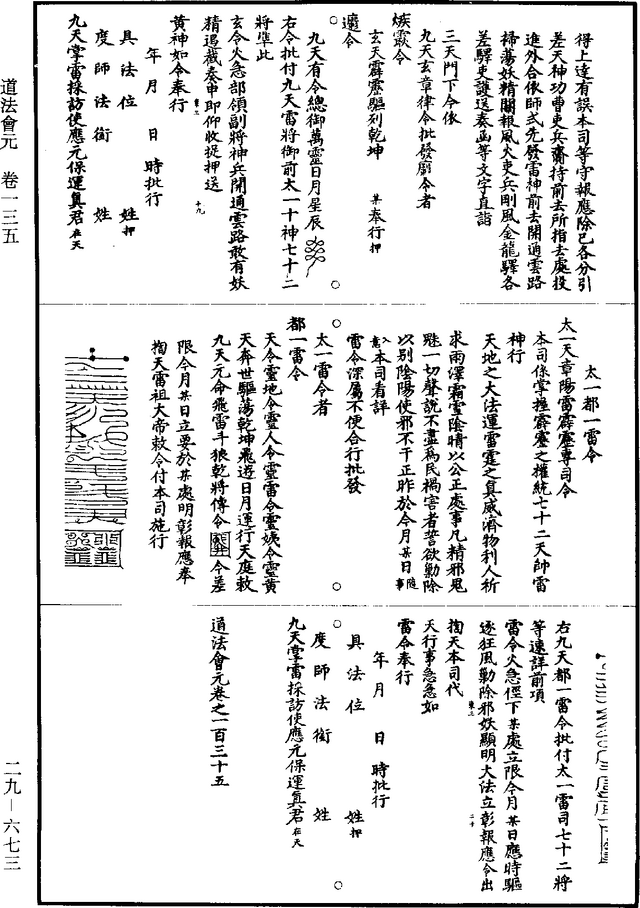 得上達有誤本司等守報應除已各分引
差天神功曹吏兵齎持前去所指去處投
進外合依師式先發雷神前去開通雲路
掃蕩妖精關報風火吏兵剛風金龍驛各
差驛吏護送奏函等文字直詣
三天門下令依
九天玄章律令批發厨令者
嫉霞令
玄天霹靂驅列乾坤 某奉行押
邏令
九天有令總御萬靈日月星辰
右令批付九天雷將御前太一十神七十二
將準此
玄令火急部領副將神兵開通雲路敢有妖
精遏截奏申即仰收捉押送
黃神如令奉行
年 月 日 時批行
具法位 姓押
度師法銜 姓
九天掌雷採訪使應元保運真君在天
太一都一雷令
太一天章陽雷霹靂專司令
本司係掌握霹靂之權統七十二天帥雷
神行
天地之大法運雷霆之真威濟物利人祈
求雨澤霜雪陰晴以公正處事凡精邪鬼
魅一切聲說不盡為民禍害者誓欲勦除
以別陰陽使邪不干正昨於今月某日隨事
入意本司看詳
雷令深屬不便合行批發
太一雷令者
都一雷令
天令靈地令靈人令靈雷令靈姨令靈黃
天奔世驅蕩乾坤飛遊日月運行天庭敕
九天元命飛雷斗狼乾將傳令 令差
限今月某日立要於某處明彰報應奉
掏天雷祖大帝敕令付本司施行
右九天都一雷令批付太一雷司七十二將
等速詳前項
雷令火急徑下某處立限今月某日應時驅
逐狂風勦除邪妖顯明大法立彰報應令出
掏天本司代
天行事急急如
雷令奉行
年 月 日 時批行
具法位 姓押
度師法銜 姓
九天掌雷採訪使應元保運真君在天
道法會元卷之一百三十五
道法會元 卷一三五
二九－六七三